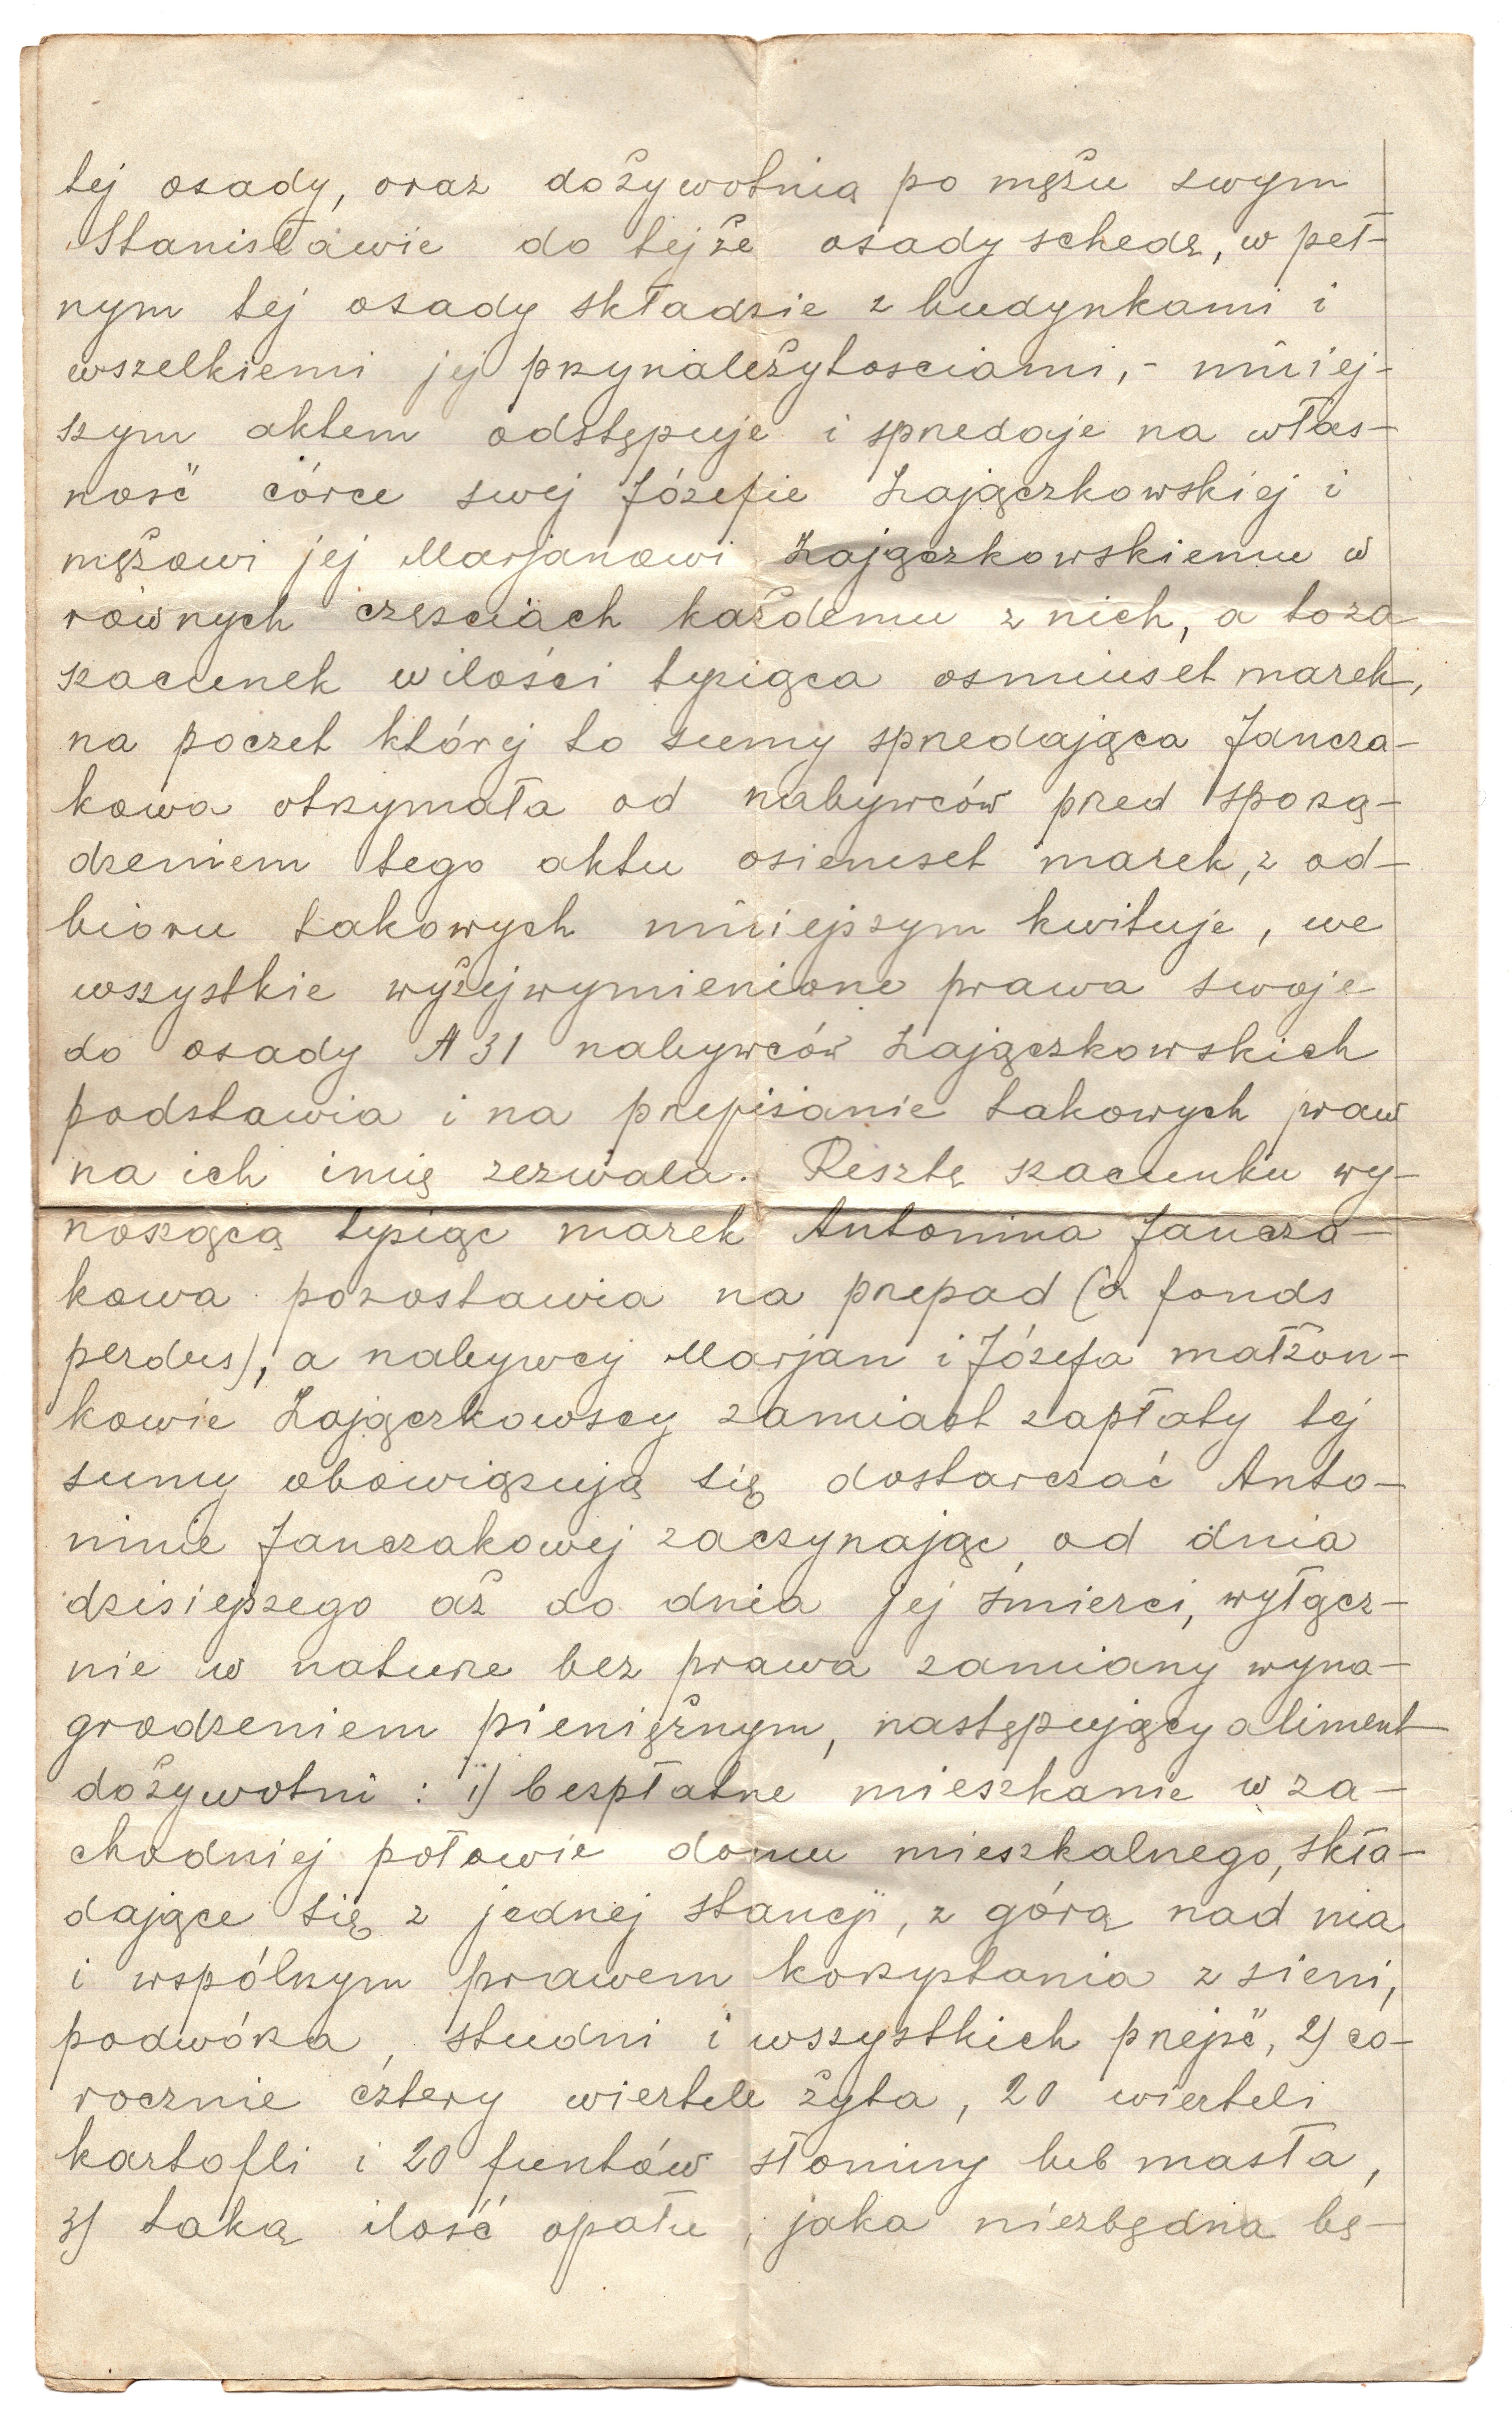 tej osady, oraz dożywotnią po mężu swym
Stanisławie do tejże osady schedę, w peł-
nym tej osady składzie z budynkami i
wszelkiemi jej przynależytosciami,- niniej-
szym aktem odstępuje i sprzedaje na włas-
ność córce swej Józefie Zajączkowskiej i
mężowi jej Marjanowi Zajączkowskiemu w
równych częsciach każdemu z nich, a to za
szacunek w ilości tysiąca osmiuset marek,
na poczet której to sumy sprzedająca Jancza-
kowa otrzymała od nabywców przed sporzą-
dzeniem tego aktu osiemset marek, z od-
bioru takowych niniejszym kwituje, we
wszystkie wyżejwymienione prawa swoje
do osady № 31 nabywców Zajączkowskich
podstawia i na przepisanie takowych praw
na ich imię zezwala. Resztę szacunku wy-
noszącą tysiąc marek Antonina Jancza-
kowa pozostawia na przepad (à fonds
perdus), a nabywcy Marjan i Józefa małżon-
kowie Zajączkowscy zamiast zapłaty tej
sumy obowiązują się dostarczać Anto-
ninie Janczakowej zaczynając od dnia
dzisiejszego aż do dnia jej śmierci, wyłącz-
nie w naturze bez prawa zamiany wyna-
grodzeniem pieniężnym, następujący aliment
dożywotni : 1) bezpłatne mieszkanie w za-
chodniej połowie domu mieszkalnego, skła-
dające się z jednej stancji, z górą nad nią
i wspólnym prawem korzystania z sieni,
podwórza, studni i wszystkich przejść, 2) co-
rocznie cztery wiertele żyta, 20 wierteli
kartofli i 20 funtów słoniny lub masła,
3) taką ilość opału, jaka niezbędna bę-